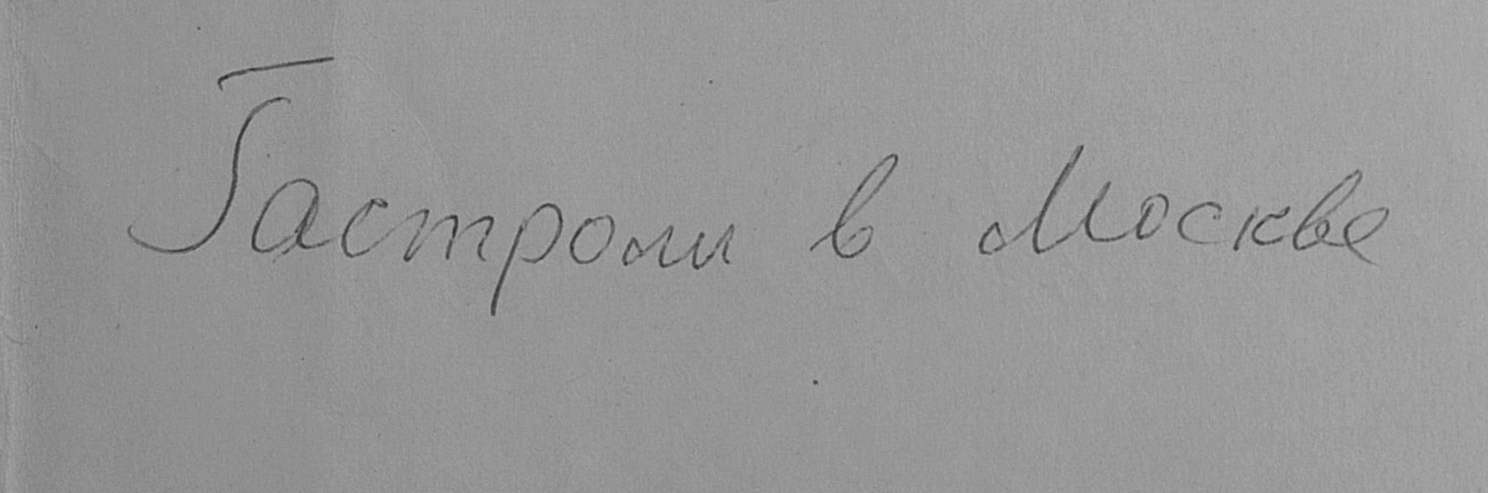 Гастроли в Москве